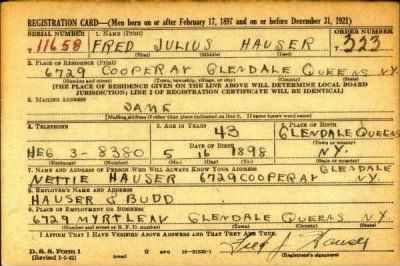 REGISTRATION CARD—(Men born on or after February 17, 1897 and on or before December 31, 1921)
SERIAL NUMBER 1. NAME (Print) ORDER NUMBER
T 11658 FRED JULIUS HAUSER T 323
(First) (Middle) (Last)
2. PLACE OF RESIDENCE (Print)
6729 COOPER AV GLENDALE QUEENS N.Y.
(Number and street) (Town, township, village, or city) (County) (State)
[THE PLACE OF RESIDENCE GIVEN ON THE LINE ABOVE WILL DETERMINE LOCAL BOARD
JURISDICTION; LINE 2 OF REGISTRATION CERTIFICATE WILL BE IDENTICAL]
3. MAILING ADDRESS
SAME
[Mailing address if other than place indicated on line 2. If same insert word same]
4. TELEPHONE 5. AGE IN YEARS 6. PLACE OF BIRTH
43 GLENDALE QUEENS
DATE OF BIRTH (Town or county)
HEG 3-8380 5 16 1898 N.Y.
(Exchange) (Number) (Mo.) (Day) (Yr.) (State or country)
7. NAME AND ADDRESS OF PERSON WHO WILL ALWAYS KNOW YOUR ADDRESS GLENDALE
NETTIE HAUSER 6729 COOPER AV
8. EMPLOYER'S NAME AND ADDRESS
HAUSER & BUDD
9. PLACE OF EMPLOYMENT OR BUSINESS
6729 MYRTLE AV GLENDALE QUEENS N.Y.
(Number and street or R. F. D. number) (Town) (County) (State)
I AFFIRM THAT I HAVE VERIFIED ABOVE ANSWERS AND THAT THEY ARE TRUE.
D. S. S. Form 1
(Revised 1-1-42) GPO Fred J Hauser
(Registrant's signature)